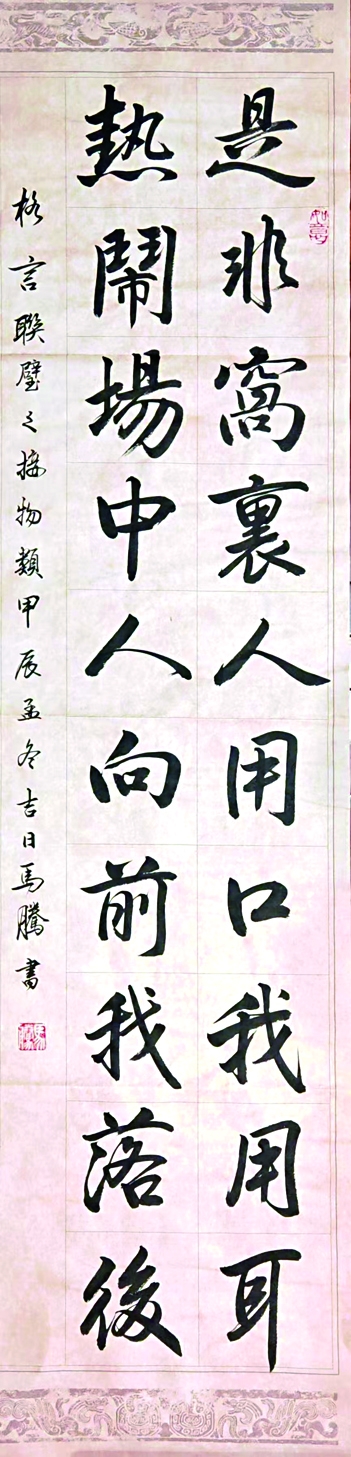 是非窩裏人用口我用耳
熱鬧場中人向前我落後
格言聯璧之接物類甲辰孟冬吉日馬騰書
如意